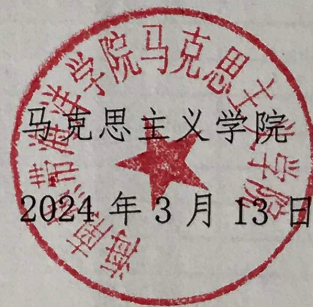 海南热带海洋学院马克思主义学院
马克思主义学院
2024年3月13日